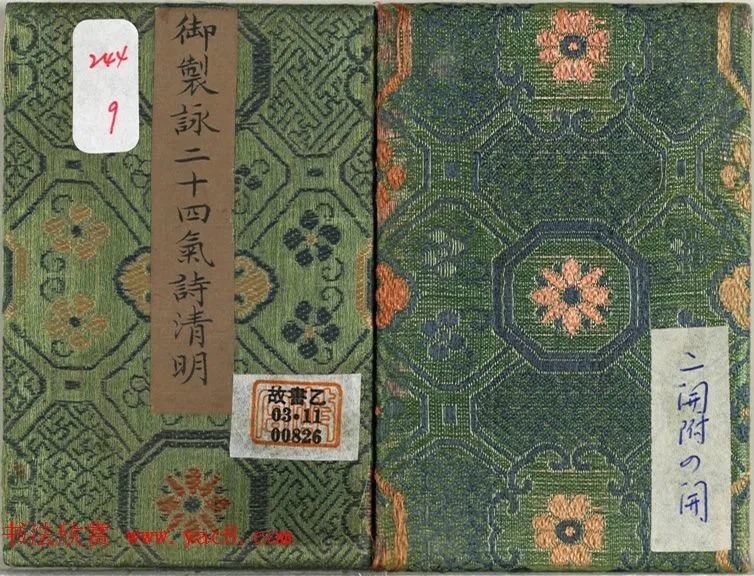 244
9
御製詠二十四氣詩清明
故書乙
03•11
00826
二開附の開
书法欣赏 www.yac8.com